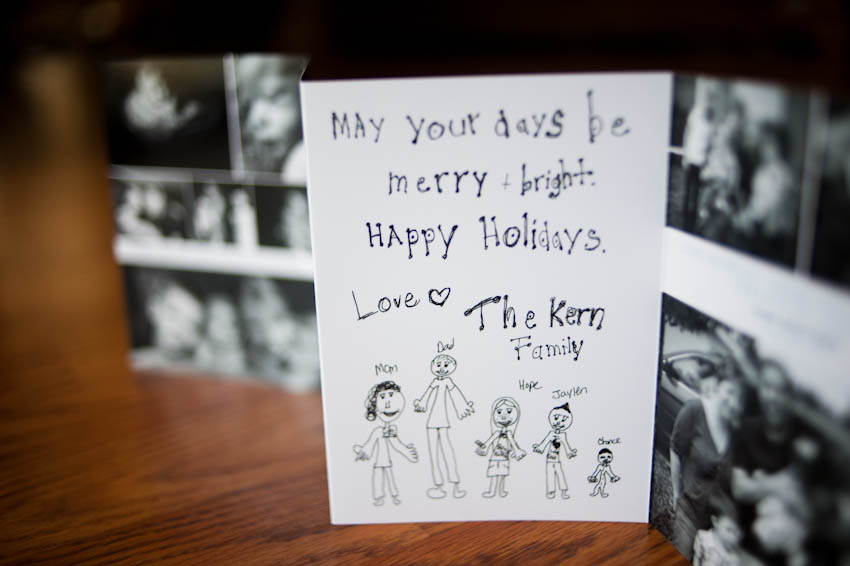 MAY your days be
merry + bright.
HAppy Holidays.
Love ♡ The Kern
Family
Mom
Dad
Hope
Jaylen
Chance